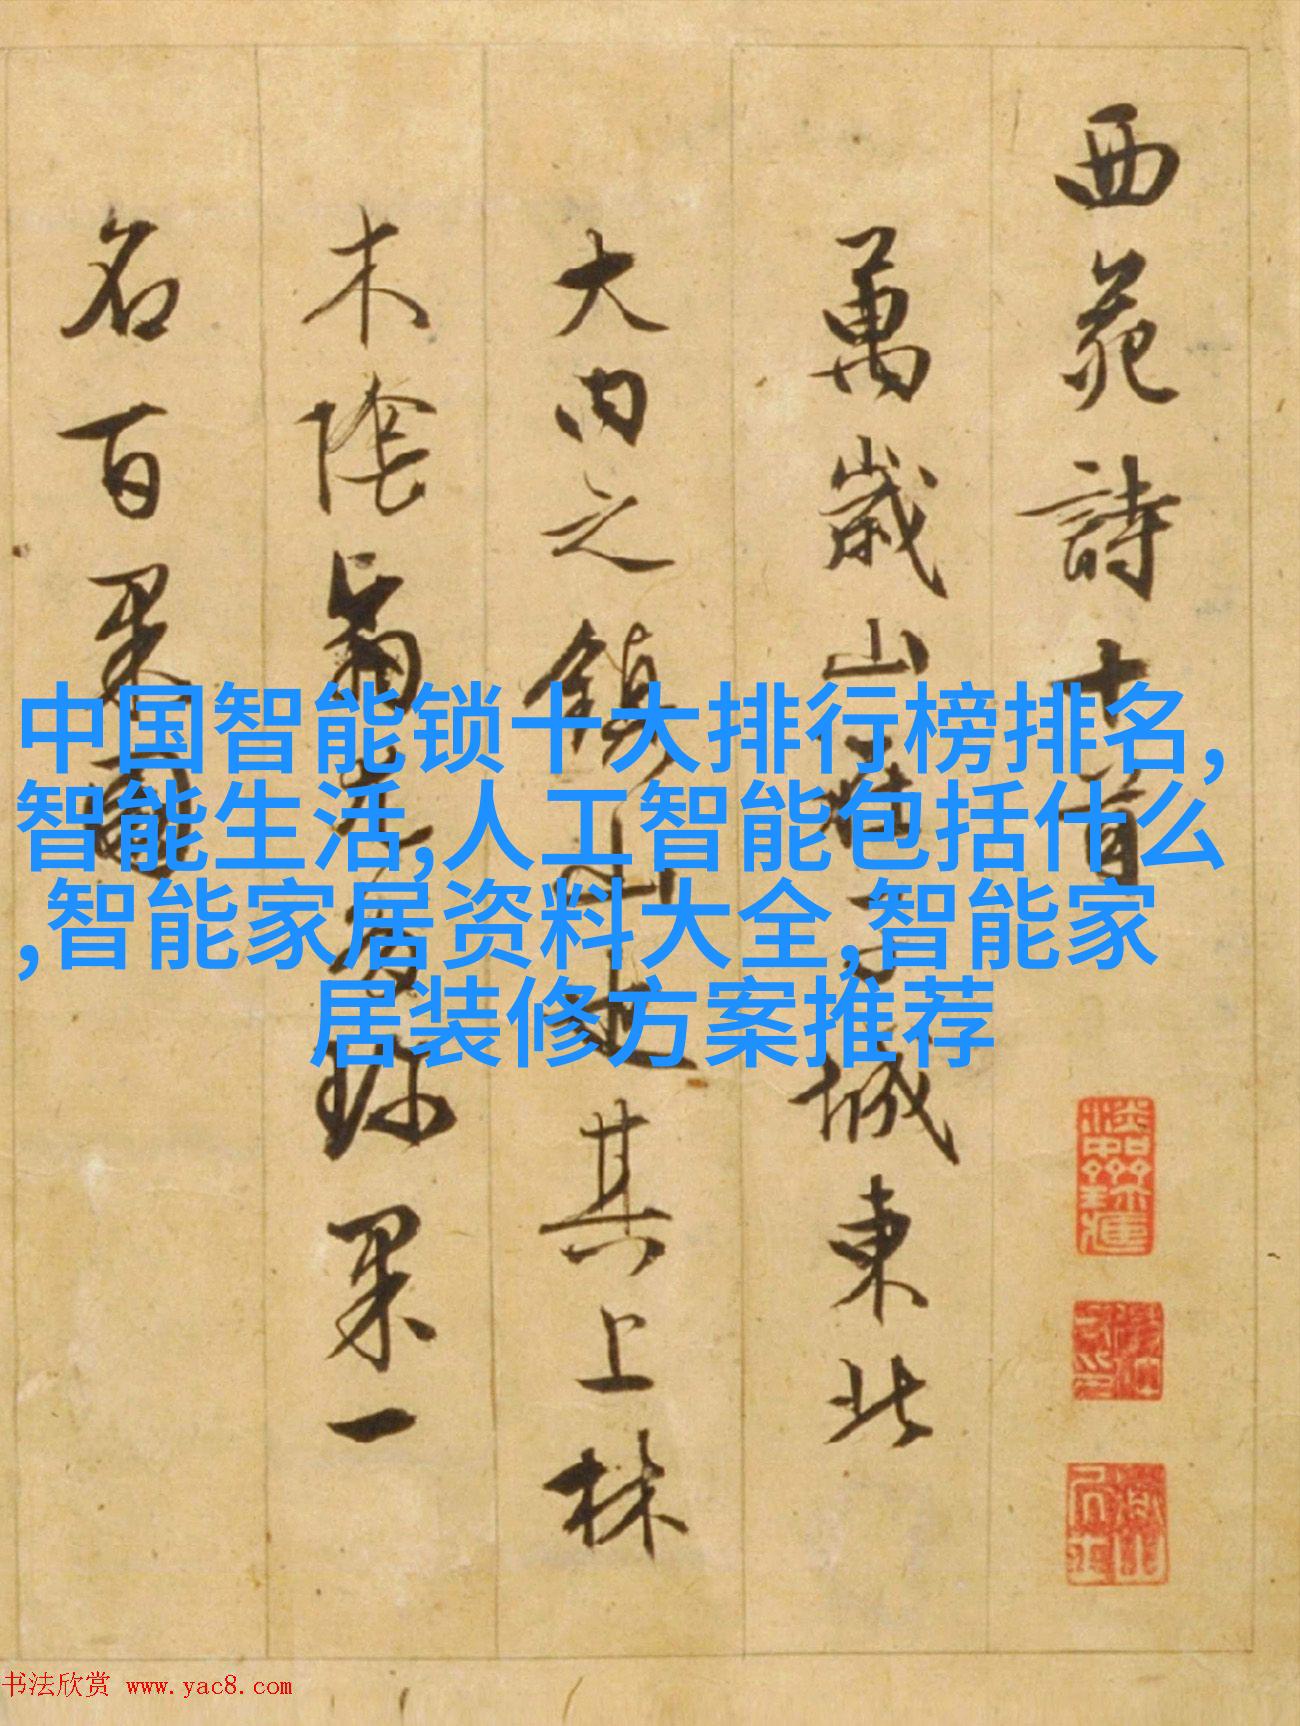 西苑詩十首
萬歲山在子城東北
大内之鎮山也其上林
木陰翳尤多珍果一
名百果園
中国智能锁十大排行榜排名,
智能生活,人工智能包括什么
,智能家居资料大全,智能家
居装修方案推荐
书法欣赏 www.yac8.com